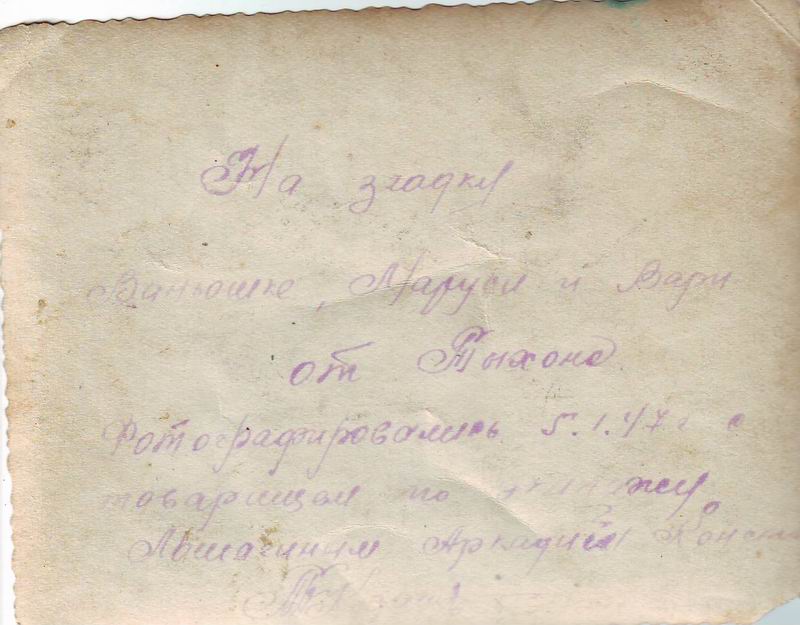 На згадку
Ванюшке, Маруси и Вари
от Тыхона
Фотографировались 5.1.47 г с
товарищом по
Аркадием